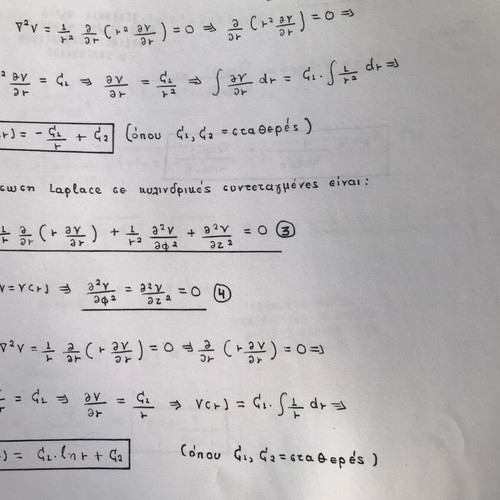 ∇²V = 1/r² ∂/∂r (r² ∂V/∂r) = 0 ⇒ ∂/∂r (r² ∂V/∂r) = 0 ⇒
² ∂V/∂r = C₁ ⇒ ∂V/∂r = C₁/r² ⇒ ∫ ∂V/∂r dr = C₁·∫ 1/r² dr ⇒
r) = - C₁/r + C₂ (όπου C₁, C₂ = σταθερές)
σωση Laplace σε κυλινδρικές συντεταγμένες είναι:
1/r ∂/∂r (r ∂V/∂r) + 1/r² ∂²V/∂φ² + ∂²V/∂z² = 0 ③
V = V(r) ⇒ ∂²V/∂φ² = ∂²V/∂z² = 0 ④
∇²V = 1/r ∂/∂r (r ∂V/∂r) = 0 ⇒ ∂/∂r (r ∂V/∂r) = 0 ⇒
= C₁ ⇒ ∂V/∂r = C₁/r ⇒ V(r) = C₁·∫ 1/r dr ⇒
) = C₁·lnr + C₂ (όπου C₁, C₂ = σταθερές)